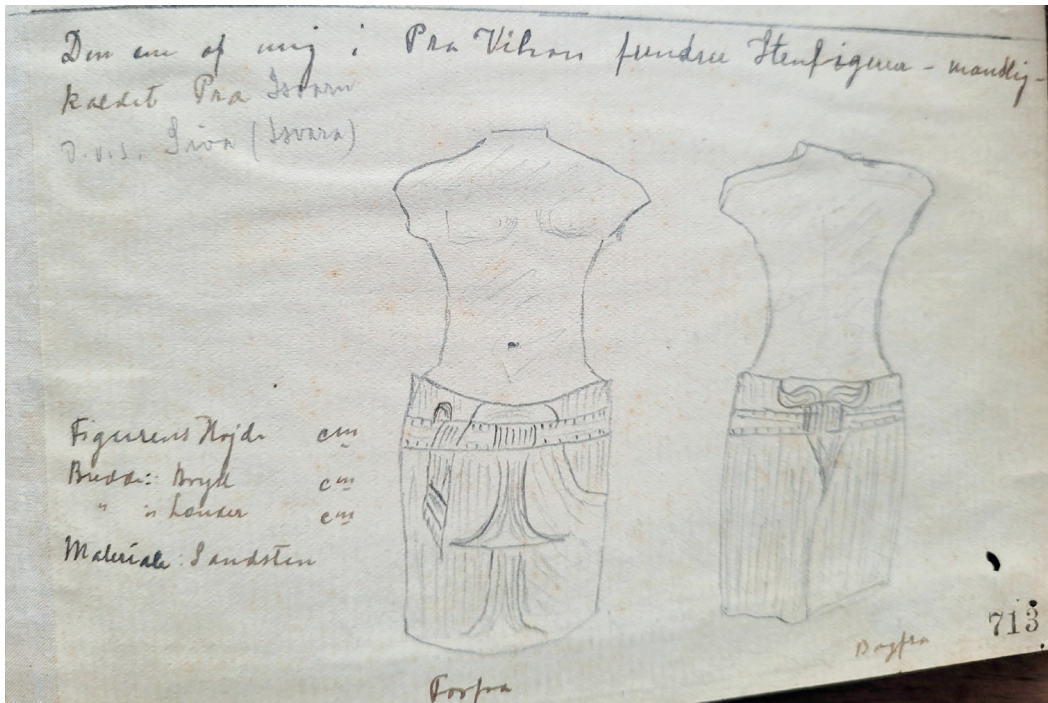 Den ene af mig i Pra Vihan fundne Stenfigurer - mandlig -
kaldet Pra Isvarn
d.v.s. Siva (Isvara)
Figurens Højde cm
Bredde: Bryst cm
" i Lænder cm
Materiale: Sandsten
713
Bagfra
Forfra